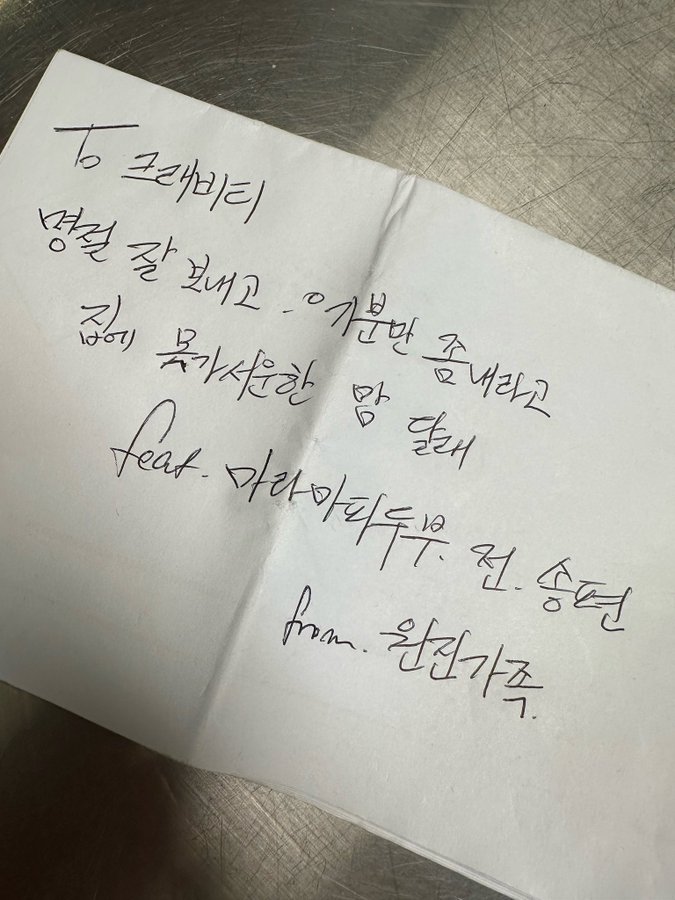 To 크래비티
명절 잘 보내고. 기분만 좀 내라고
집에 못가 서운한 맘 달래
feat. 마라마파두부. 전. 송편
from. 완전가족.